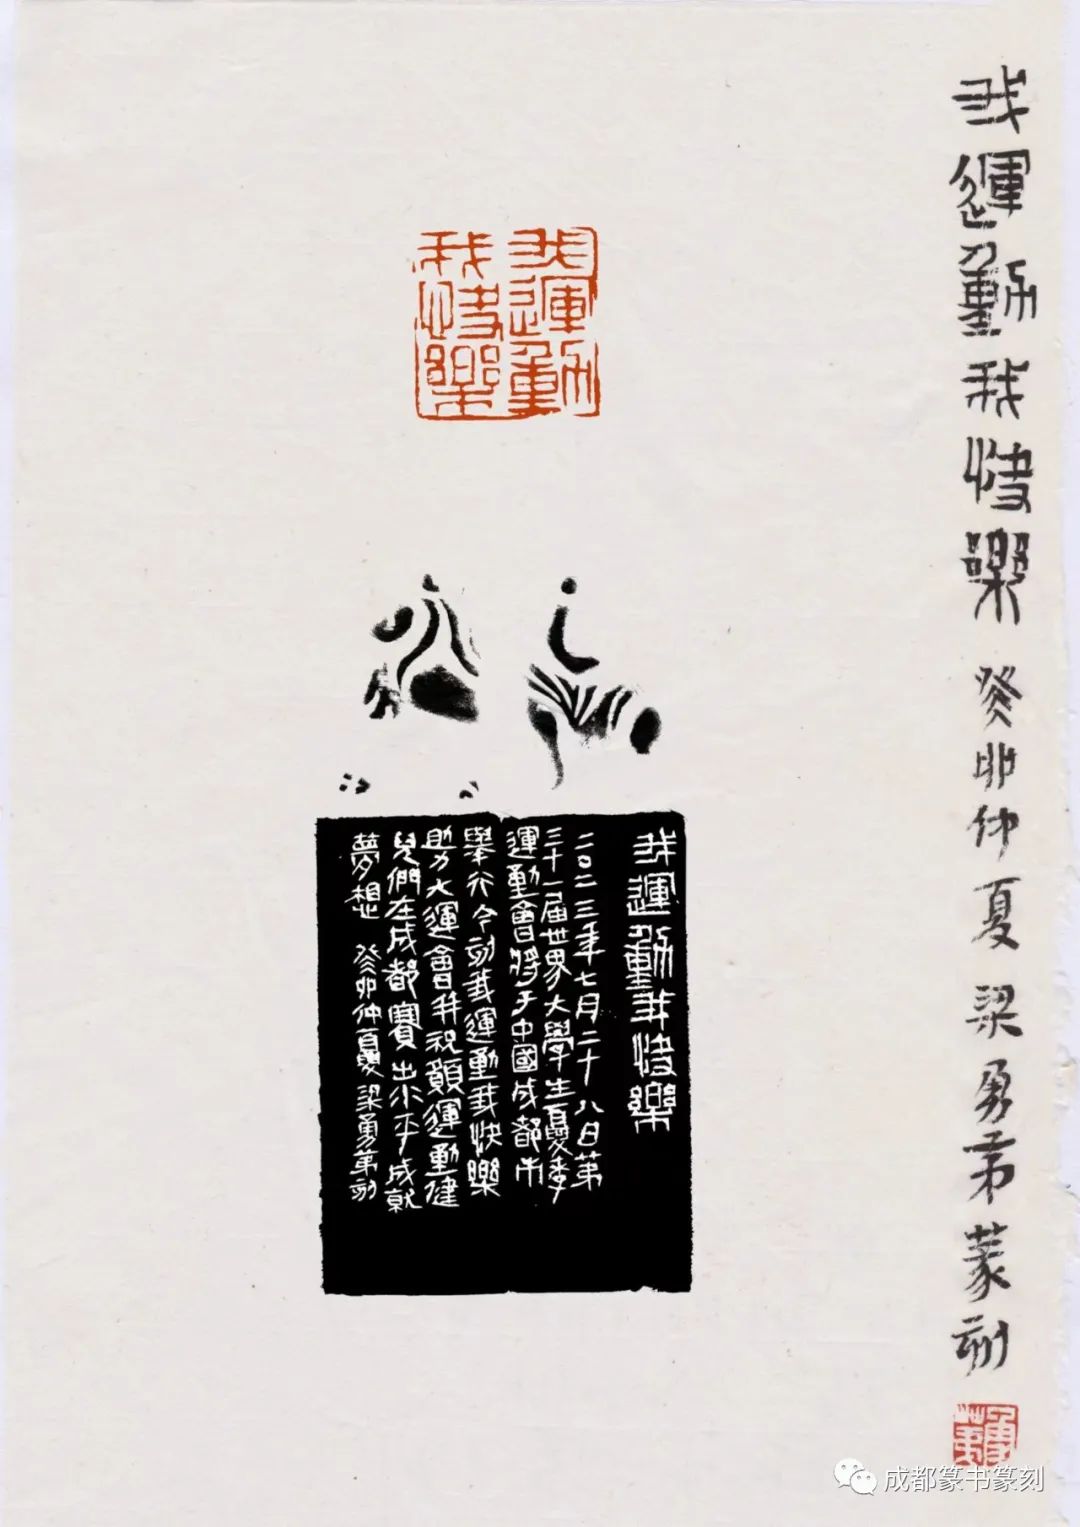 我運動我快樂 癸卯仲夏 梁勇第篆刻
我運動我快樂
我運動我快樂
二〇二三年七月二十八日第
三十一届世界大學生夏季
運動會將于中國成都市
舉行今刻我運動我快樂
助力大運會并祝願運動健
兒們在成都賽出水平成就
夢想 癸卯仲夏梁勇第刻
勇第
成都篆书篆刻